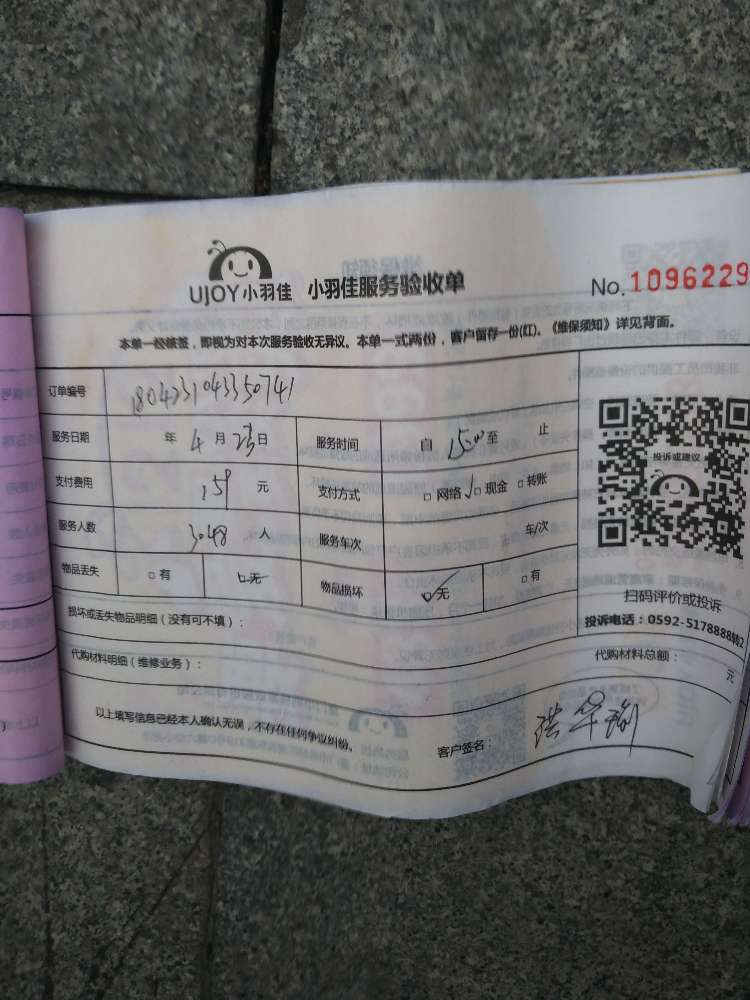 UJOY小羽佳 小羽佳服务验收单 No. 1096229
本单一经接签，即视为对本次服务验收无异议。本单一式两份，客户留存一份(红)。《维保须知》详见背面。
订单编号 1804231043350741
服务日期 年 4 月 23 日 服务时间 自 15:00 至 止
支付费用 159 元 支付方式 □网络 √□现金 □转账
服务人数 3048 人 服务车次 车/次
物品丢失 □有 □无 物品损坏 □无 □有
损坏或丢失物品明细（没有可不填）：
代购材料明细（维修业务）： 代购材料总额： 元
以上填写信息已经本人确认无误，不存在任何争议纠纷。 客户签名：
投诉或建议
扫码评价或投诉
投诉电话：0592-5178888转2